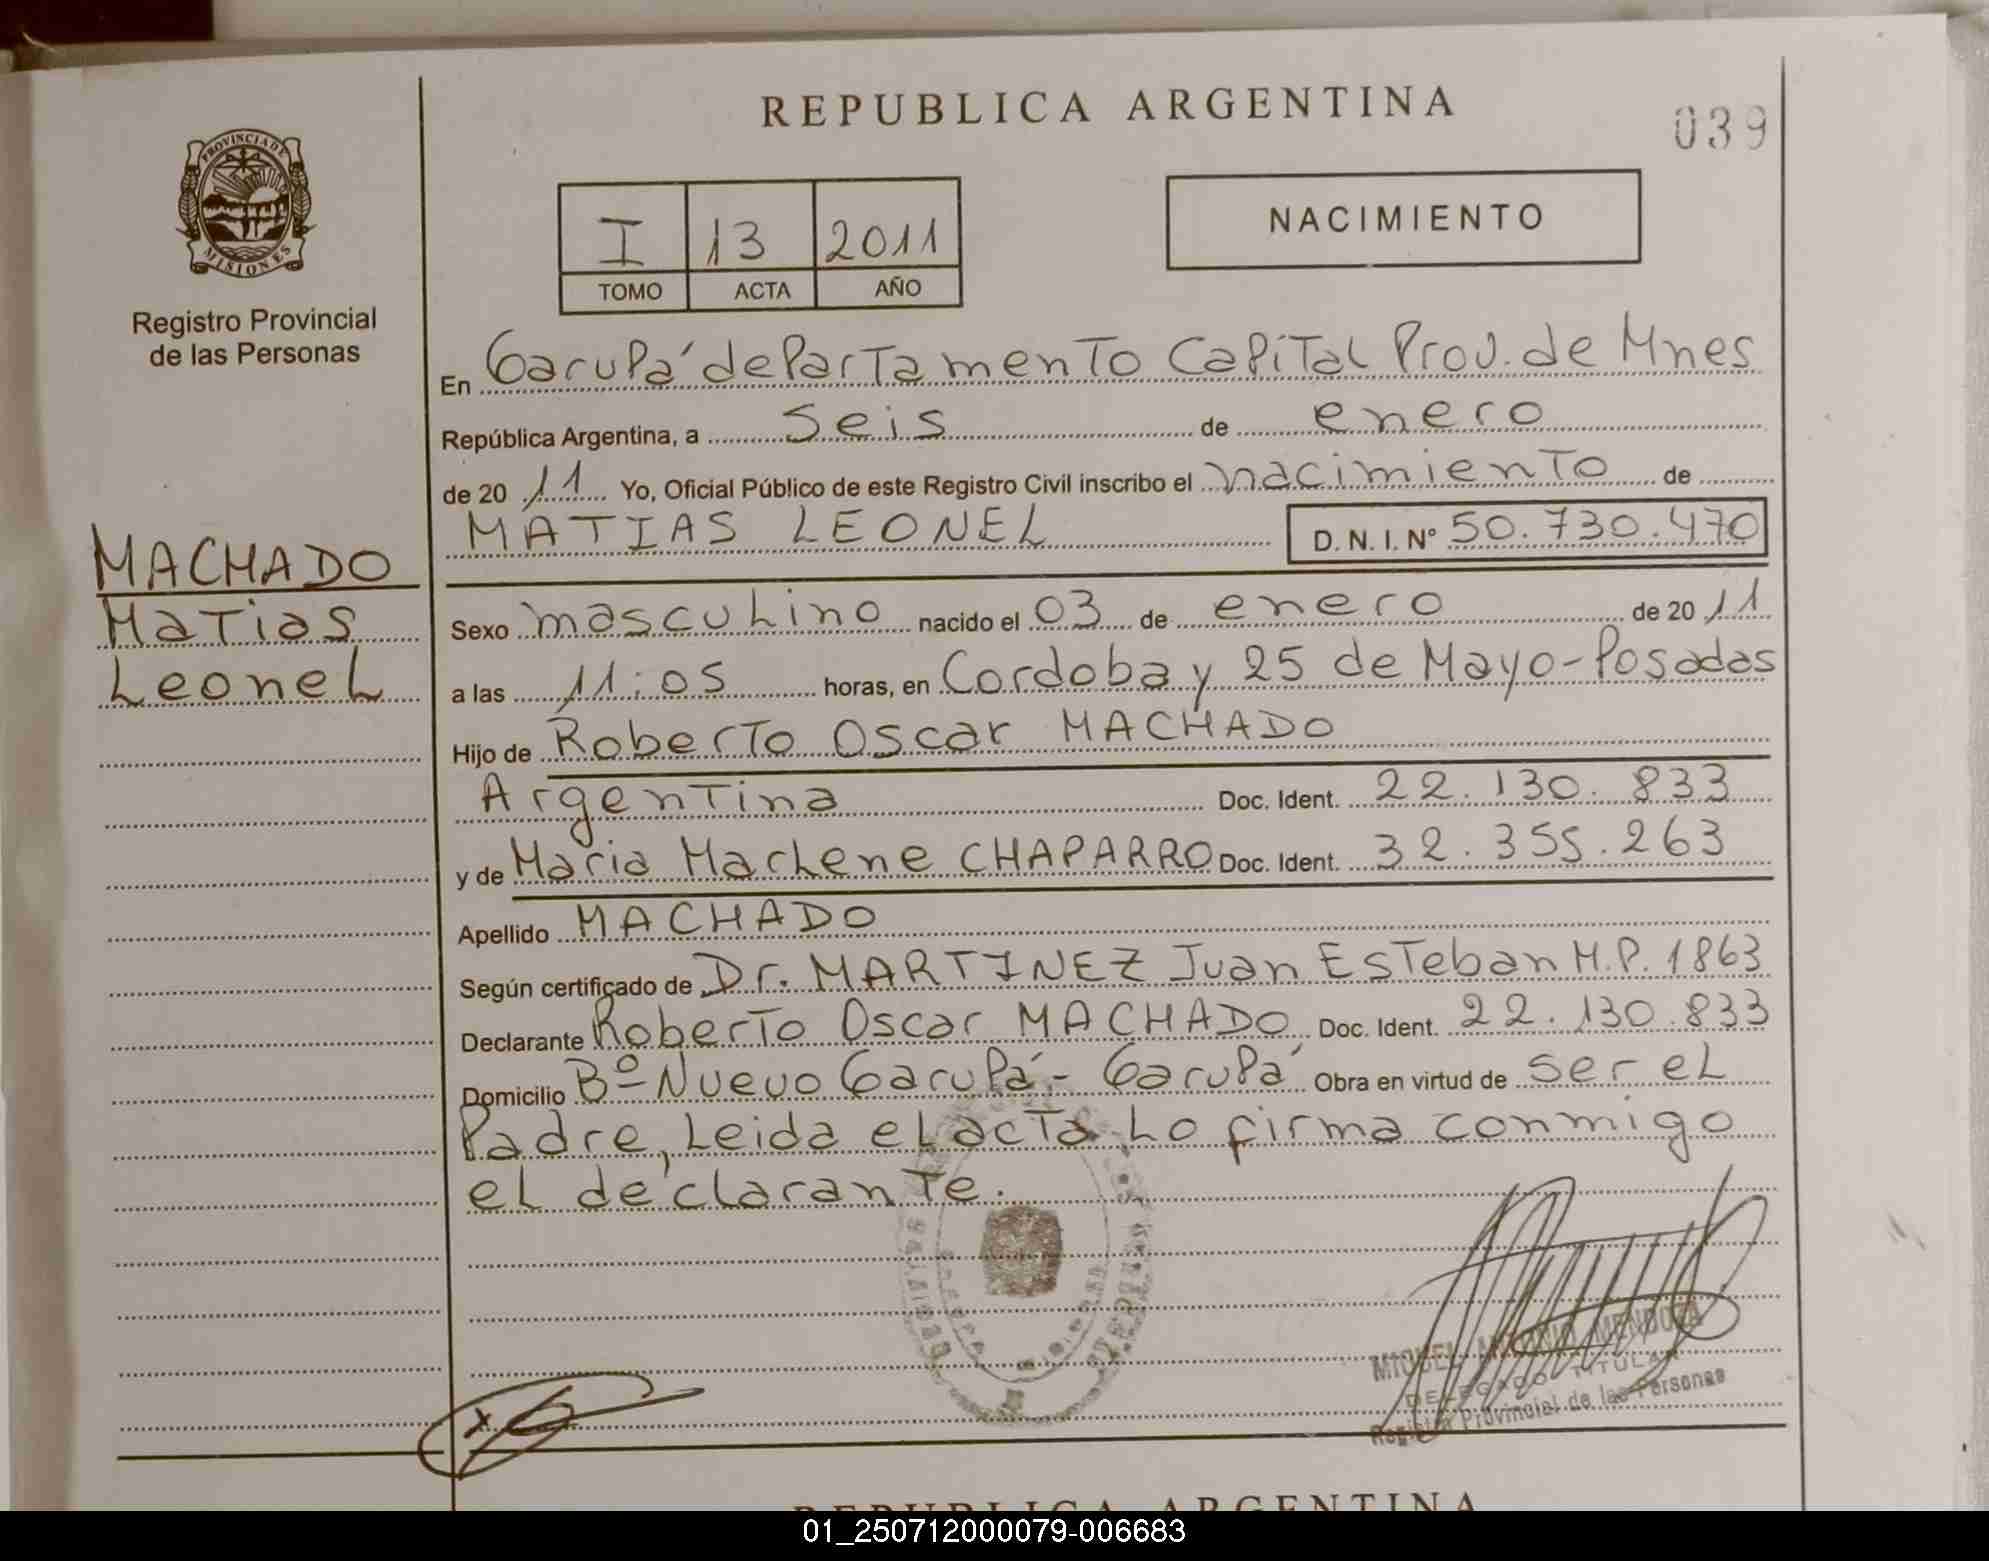 REPUBLICA ARGENTINA
039
PROVINCIA DE
MISIONES
Registro Provincial
de las Personas
I 13 2011
TOMO ACTA AÑO
NACIMIENTO
En Garupá departamento Capital Prov. de Mnes
República Argentina, a seis de enero
de 20 11 Yo, Oficial Público de este Registro Civil inscribo el nacimiento de
MATIAS LEONEL D. N. I. Nº 50.730.470
MACHADO
Matias
Leonel
Sexo masculino nacido el 03 de enero de 20 11
a las 11:05 horas, en Cordoba y 25 de Mayo-Posadas
Hijo de Roberto Oscar MACHADO
Argentina Doc. Ident. 22.130.833
y de Maria Marlene CHAPARRO Doc. Ident. 32.355.263
Apellido MACHADO
Según certificado de Dr. MARTINEZ Juan Esteban M.P. 1863
Declarante Roberto Oscar MACHADO Doc. Ident. 22.130.833
Domicilio Bº Nuevo Garupá - Garupá Obra en virtud de ser el
Padre, Leida el acta lo firma conmigo
el declarante.
MIGUEL ANTONIO MENDOZA
DELEGADO TITULAR
Registro Provincial de las Personas
REPUBLICA ARGENTINA
01_250712000079-006683